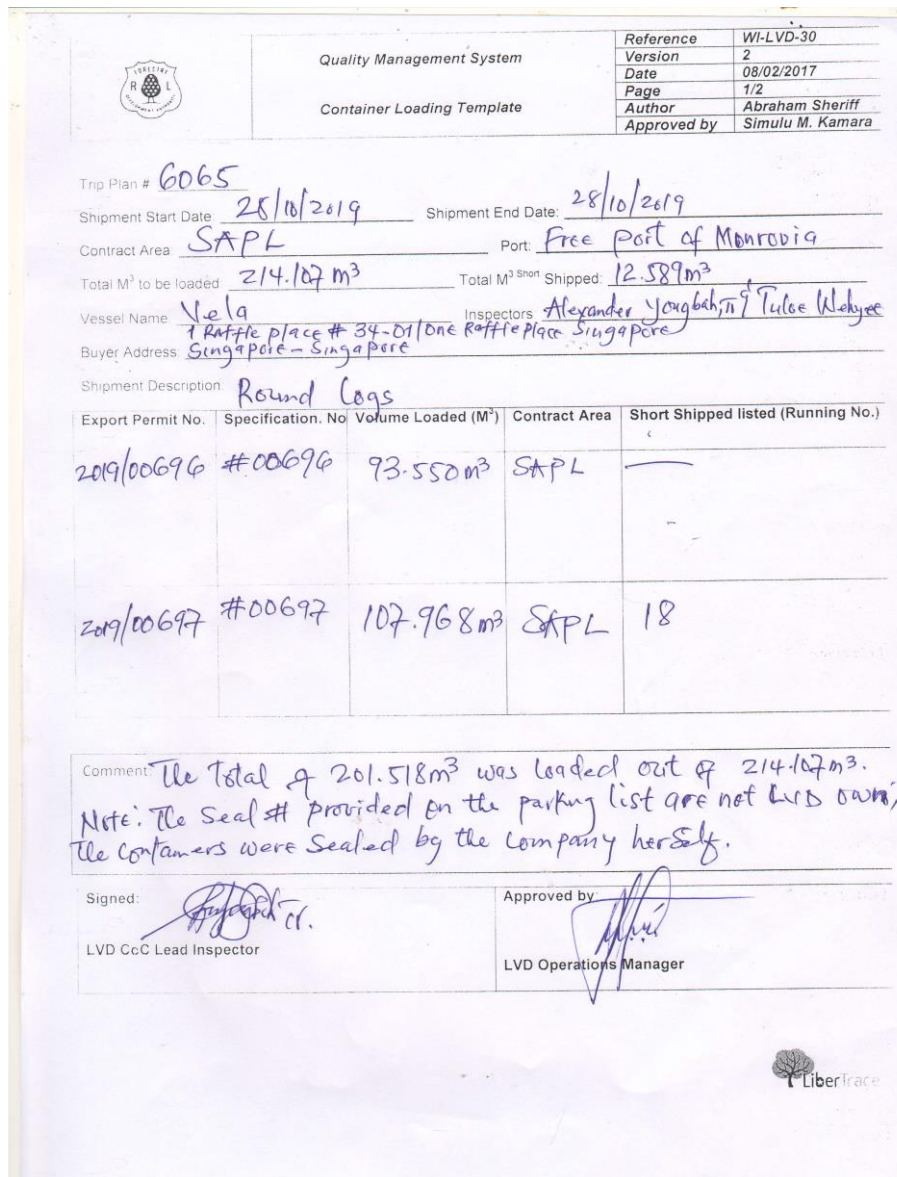 R L
Quality Management System
Container Loading Template
Reference WI-LVD-30
Version 2
Date 08/02/2017
Page 1/2
Author Abraham Sheriff
Approved by Simulu M. Kamara
Trip Plan # 6065
Shipment Start Date: 28/10/2019 Shipment End Date: 28/10/2019
Contract Area: SAPL Port: Free port of Monrovia
Total M³ to be loaded 214.107 m³ Total M³ Short Shipped: 12.589m³
Vessel Name: Vela Inspectors Alexander
1 Raffle place # 34-01/One Raffle Place Singapore
Buyer Address: Singapore - Singapore
Shipment Description: Round Logs
Export Permit No. Specification. No Volume Loaded (M³) Contract Area Short Shipped listed (Running No.)
2019/00696 #00696 93.550m³ SAPL —
2019/00697 #00697 107.968m³ SAPL 18
Comment: The Total of 201.518m³ was loaded out of 214.107m³.
Note: The Seal # provided on the parking list are not LVD own,
The containers were Sealed by the company herself.
Signed: Approved by:
LVD CoC Lead Inspector
LVD Operations Manager
LiberTrace